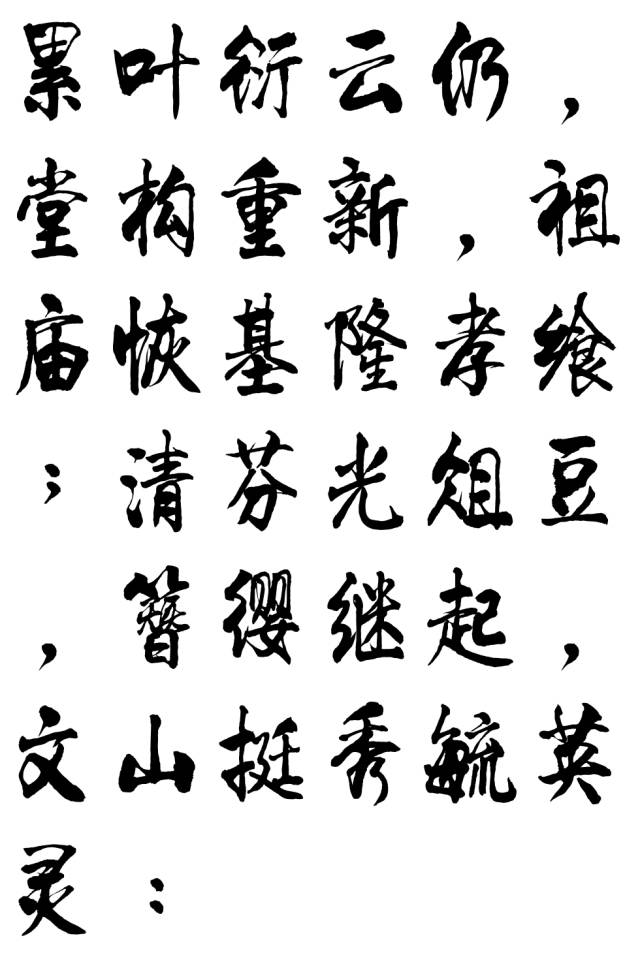 累叶衍云仍，
堂构重新，祖
庙恢基隆孝飨
；清芬光俎豆
，簪缨继起，
文山挺秀毓英
灵：